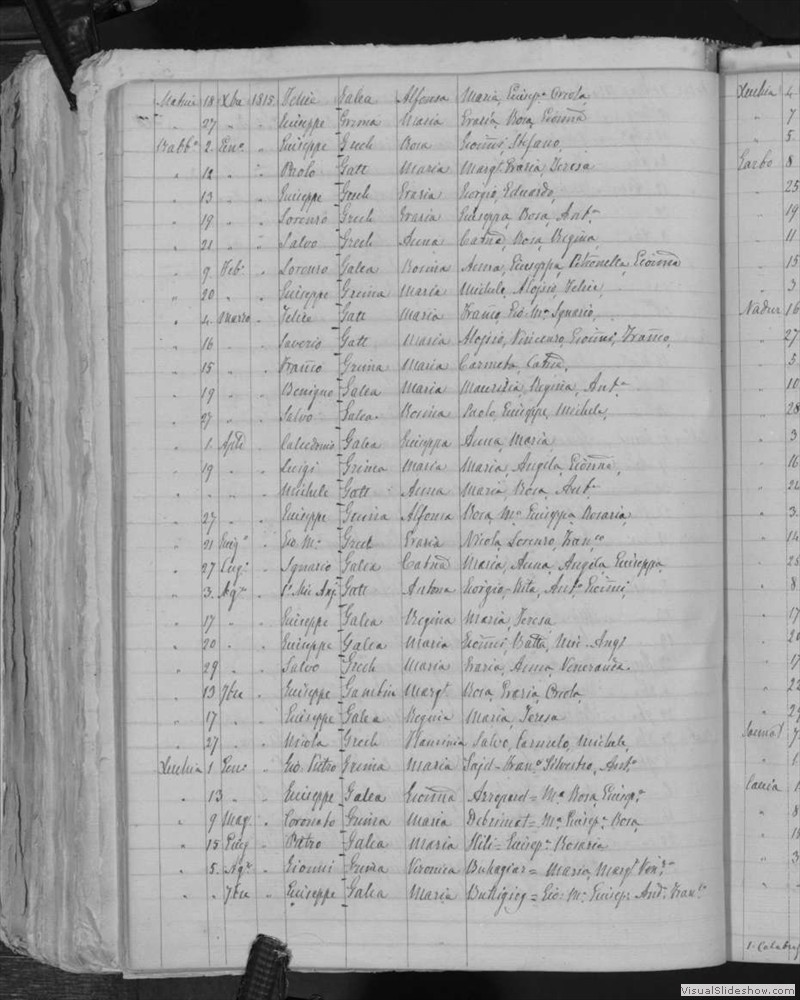 18 Xbre 1815 Felice Galea Alfonsa Maria, Giusep.a Orsola
" 27 " " Giuseppe Grima Maria Grazia, Rosa, Gioanna
Rabb.o 2 Gen.o " Giuseppe Grech Rosa Gioanni, Stefano
" 12 " " Paolo Gatt Maria Marg.t Grazia, Teresa
" 13 " " Giuseppe Grech Grazia Giorgio, Eduardo
" 19 " " Lorenzo Grech Grazia Giuseppa, Rosa, Ant.a
" 21 " " Salvo Grech Anna Catna, Rosa, Regina
" 9 Feb. " Lorenzo Galea Rosina Anna, Giuseppa, Petronella, Gioanna
" 20 " " Giuseppe Grima Maria Michele, Aloisio, Felice
" 4 Marzo " Felice Gatt Maria Franco, Gio: M.a Ignazio
" 16 " " Saverio Gatt Maria Aloisio, Vincenzo, Gioanni, Franco
" 15 " " Franco Grima Maria Carmela, Catna
" 19 " " Benigno Galea Maria Maurizia, Regina, Ant.a
" 27 " " Salvo Galea Rosina Paolo, Giuseppe, Michele
" 1 Aple " Calcedonio Galea Giuseppa Anna, Maria
" 19 " " Luigi Grima Maria Maria, Angela, Gioanna
" " " " Michele Gatt Anna Maria, Rosa, Ant.a
" 27 " " Giuseppe Grima Alfonsa Rosa, M.a Giuseppa, Rosaria
" 21 " Gio: M.a Grech Grazia Nicola, Lorenzo, Fran.co
" 27 Lug.o " Ignazio Galea Catna Maria, Anna, Angela, Giuseppa
" 3 Ag.o " Gatt Antona Giorgio, Rita, Ant.o Gioanni
" 17 " " Giuseppe Galea Regina Maria, Teresa
" 20 " " Giuseppe Galea Maria Gioanni, Batta, Mic. Ang.o
" 29 " " Salvo Grech Maria Grazia, Anna, Veneranda
" 13 7bre " Giuseppe Gambin Marg.t Rosa, Grazia, Orsola
" 17 " " Giuseppe Galea Regina Maria, Teresa
" 27 " " Nicola Grech Flaminia Salvo, Carmelo, Michele
Xeuchia 1 Gen.o " Gio: Pietro Grima Maria Sajd = Fran.o Silvestro, Ant.o
" 13 " " Giuseppe Galea Gioanna = M.a Rosa, Giusep.a
" 9 Mag. " Coronato Grima Maria Debrincat = M.a Giusep.a Rosa
" 15 Giug " Pietro Galea Maria = Giusep.a Rosaria
" 5 Ag.o " Gioanni Grima Veronica Buhagiar = Maria, Marg.t Ven.a
" " 7bre " Giuseppe Galea Maria Buttigieg = Gio: M.a Giusep. Ant. Fran.o
Xeuchia 4
" 7
" 5
Garbo 8
" 25
" 19
" 11
" 15
" 3
Nadur 16
" 27
" 5
" 10
" 28
" 3
" 16
" 24
" 3
" 14
" 25
" 8
" 17
" 17
" 22
Sannat 7
Caccia 1
" 8
" 3
VisualSlideshow.com